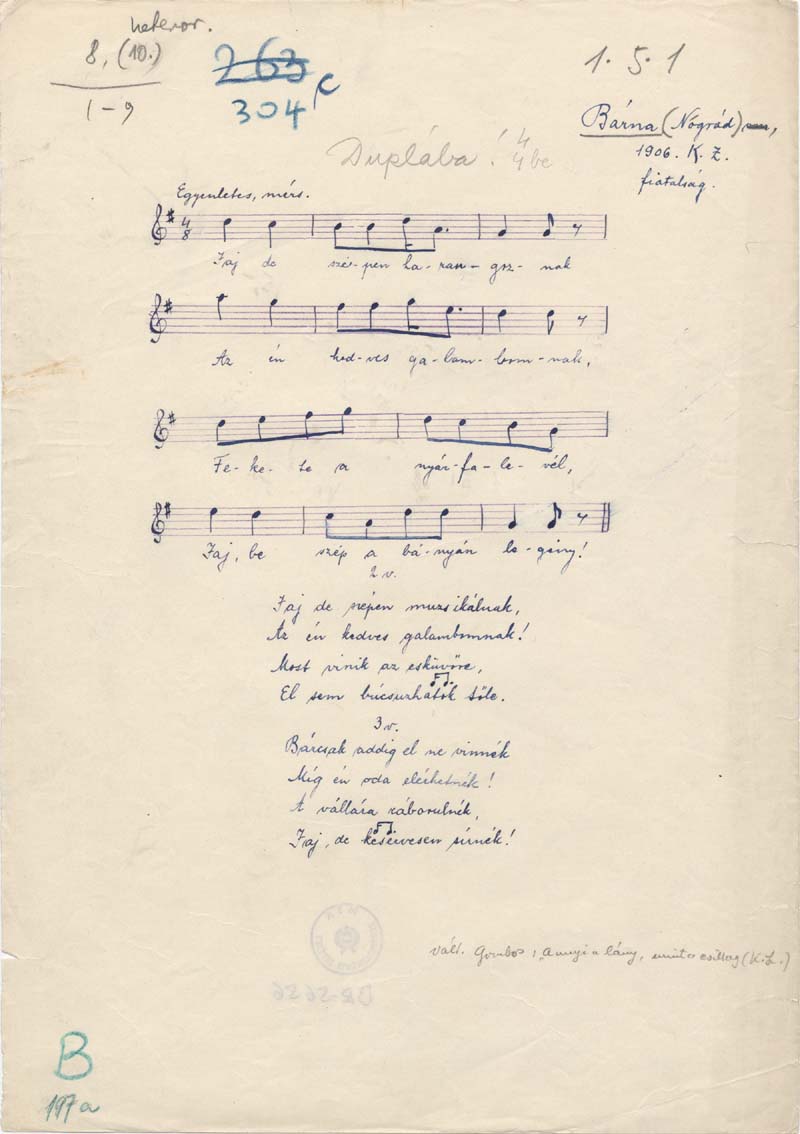 heteror.
8, (10.)
1-9
263
304/c
1. 5. 1
Bárna (Nógrád),
1906. K. Z.
fiatalság.
Duplába! 4/4 be
Egyenletes, mérs.
4/8
Jaj de szé-pen ha-ran-goz-nak
Az én ked-ves ga-lam-bom-nak,
Fe-ke-te a nyár-fa-le-vél,
Jaj, be szép a bá-nyán le-gény!
2 v.
Jaj de szépen muzsikálnak,
Az én kedves galambomnak!
Most vinik az esküvőre,
El sem búcsuzhatok tőle.
3 v.
Bárcsak addig el ne vinnék
Míg én oda elérhetnék!
A vállára ráborulnék,
Jaj, de keservesen sírnék!
vált. Gombos: Annyi a lány, mint a csillag (K.Z.)
B
197a